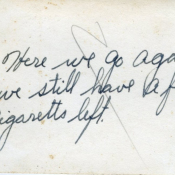 Here we go aga
we still have a f
igaretts left.